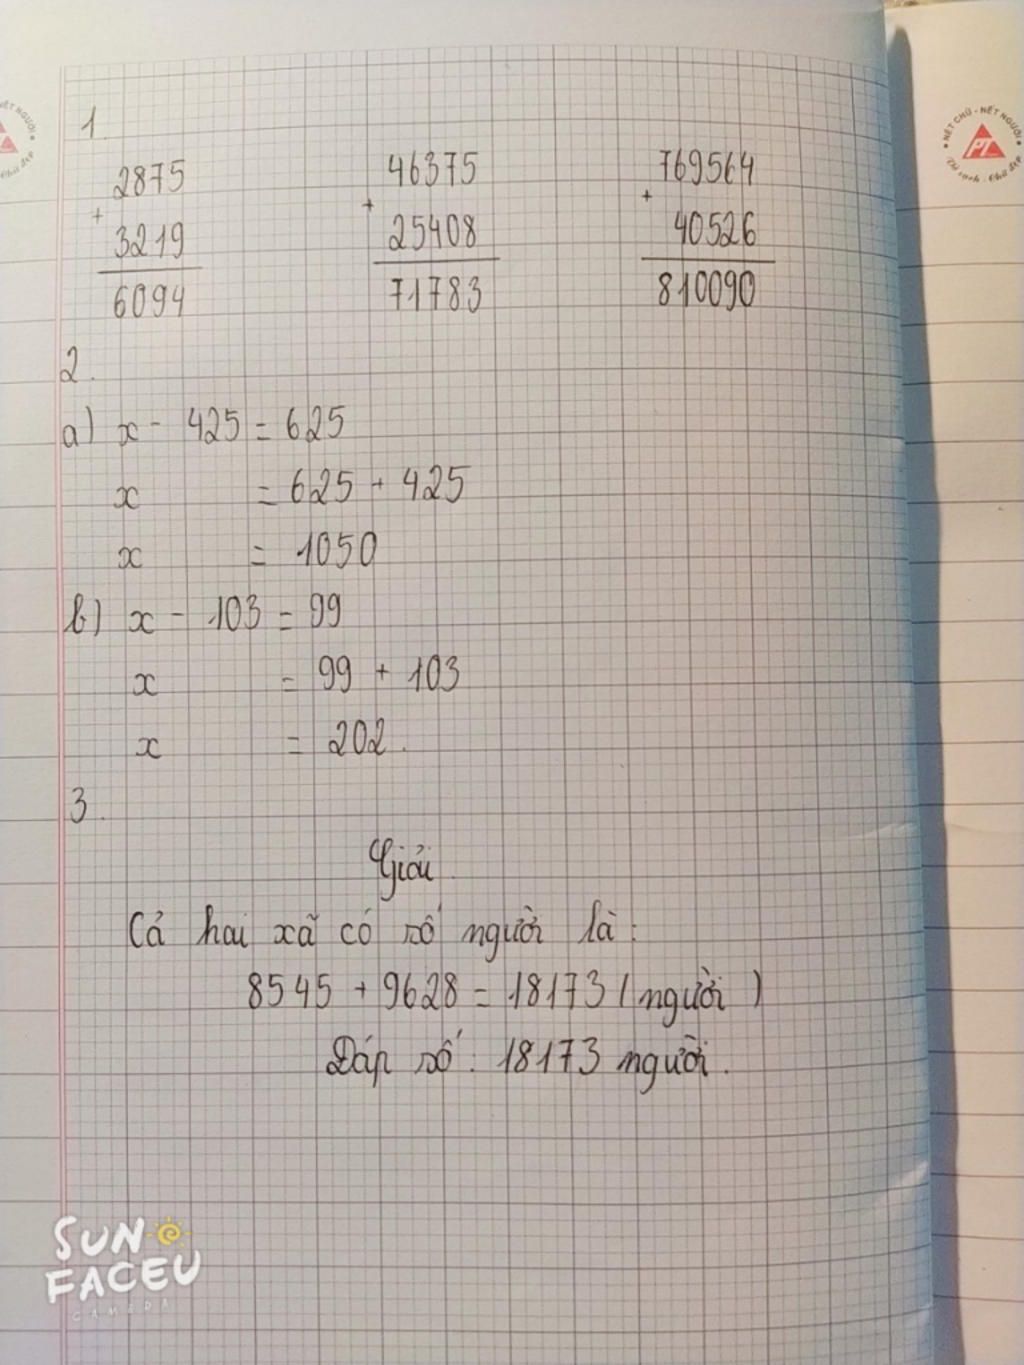 1.
2875
+
3219
6094
46375
+
25408
71783
769564
+
40526
810090
2.
a) x - 425 = 625
x = 625 + 425
x = 1050
b) x - 103 = 99
x = 99 + 103
x = 202.
3.
Giải
Cả hai xã có số người là:
8545 + 9628 = 18173 (người)
Đáp số: 18173 người.
NÉT CHỮ - NẾT NGƯỜI
PT
SUN
FACEU
CAMERA